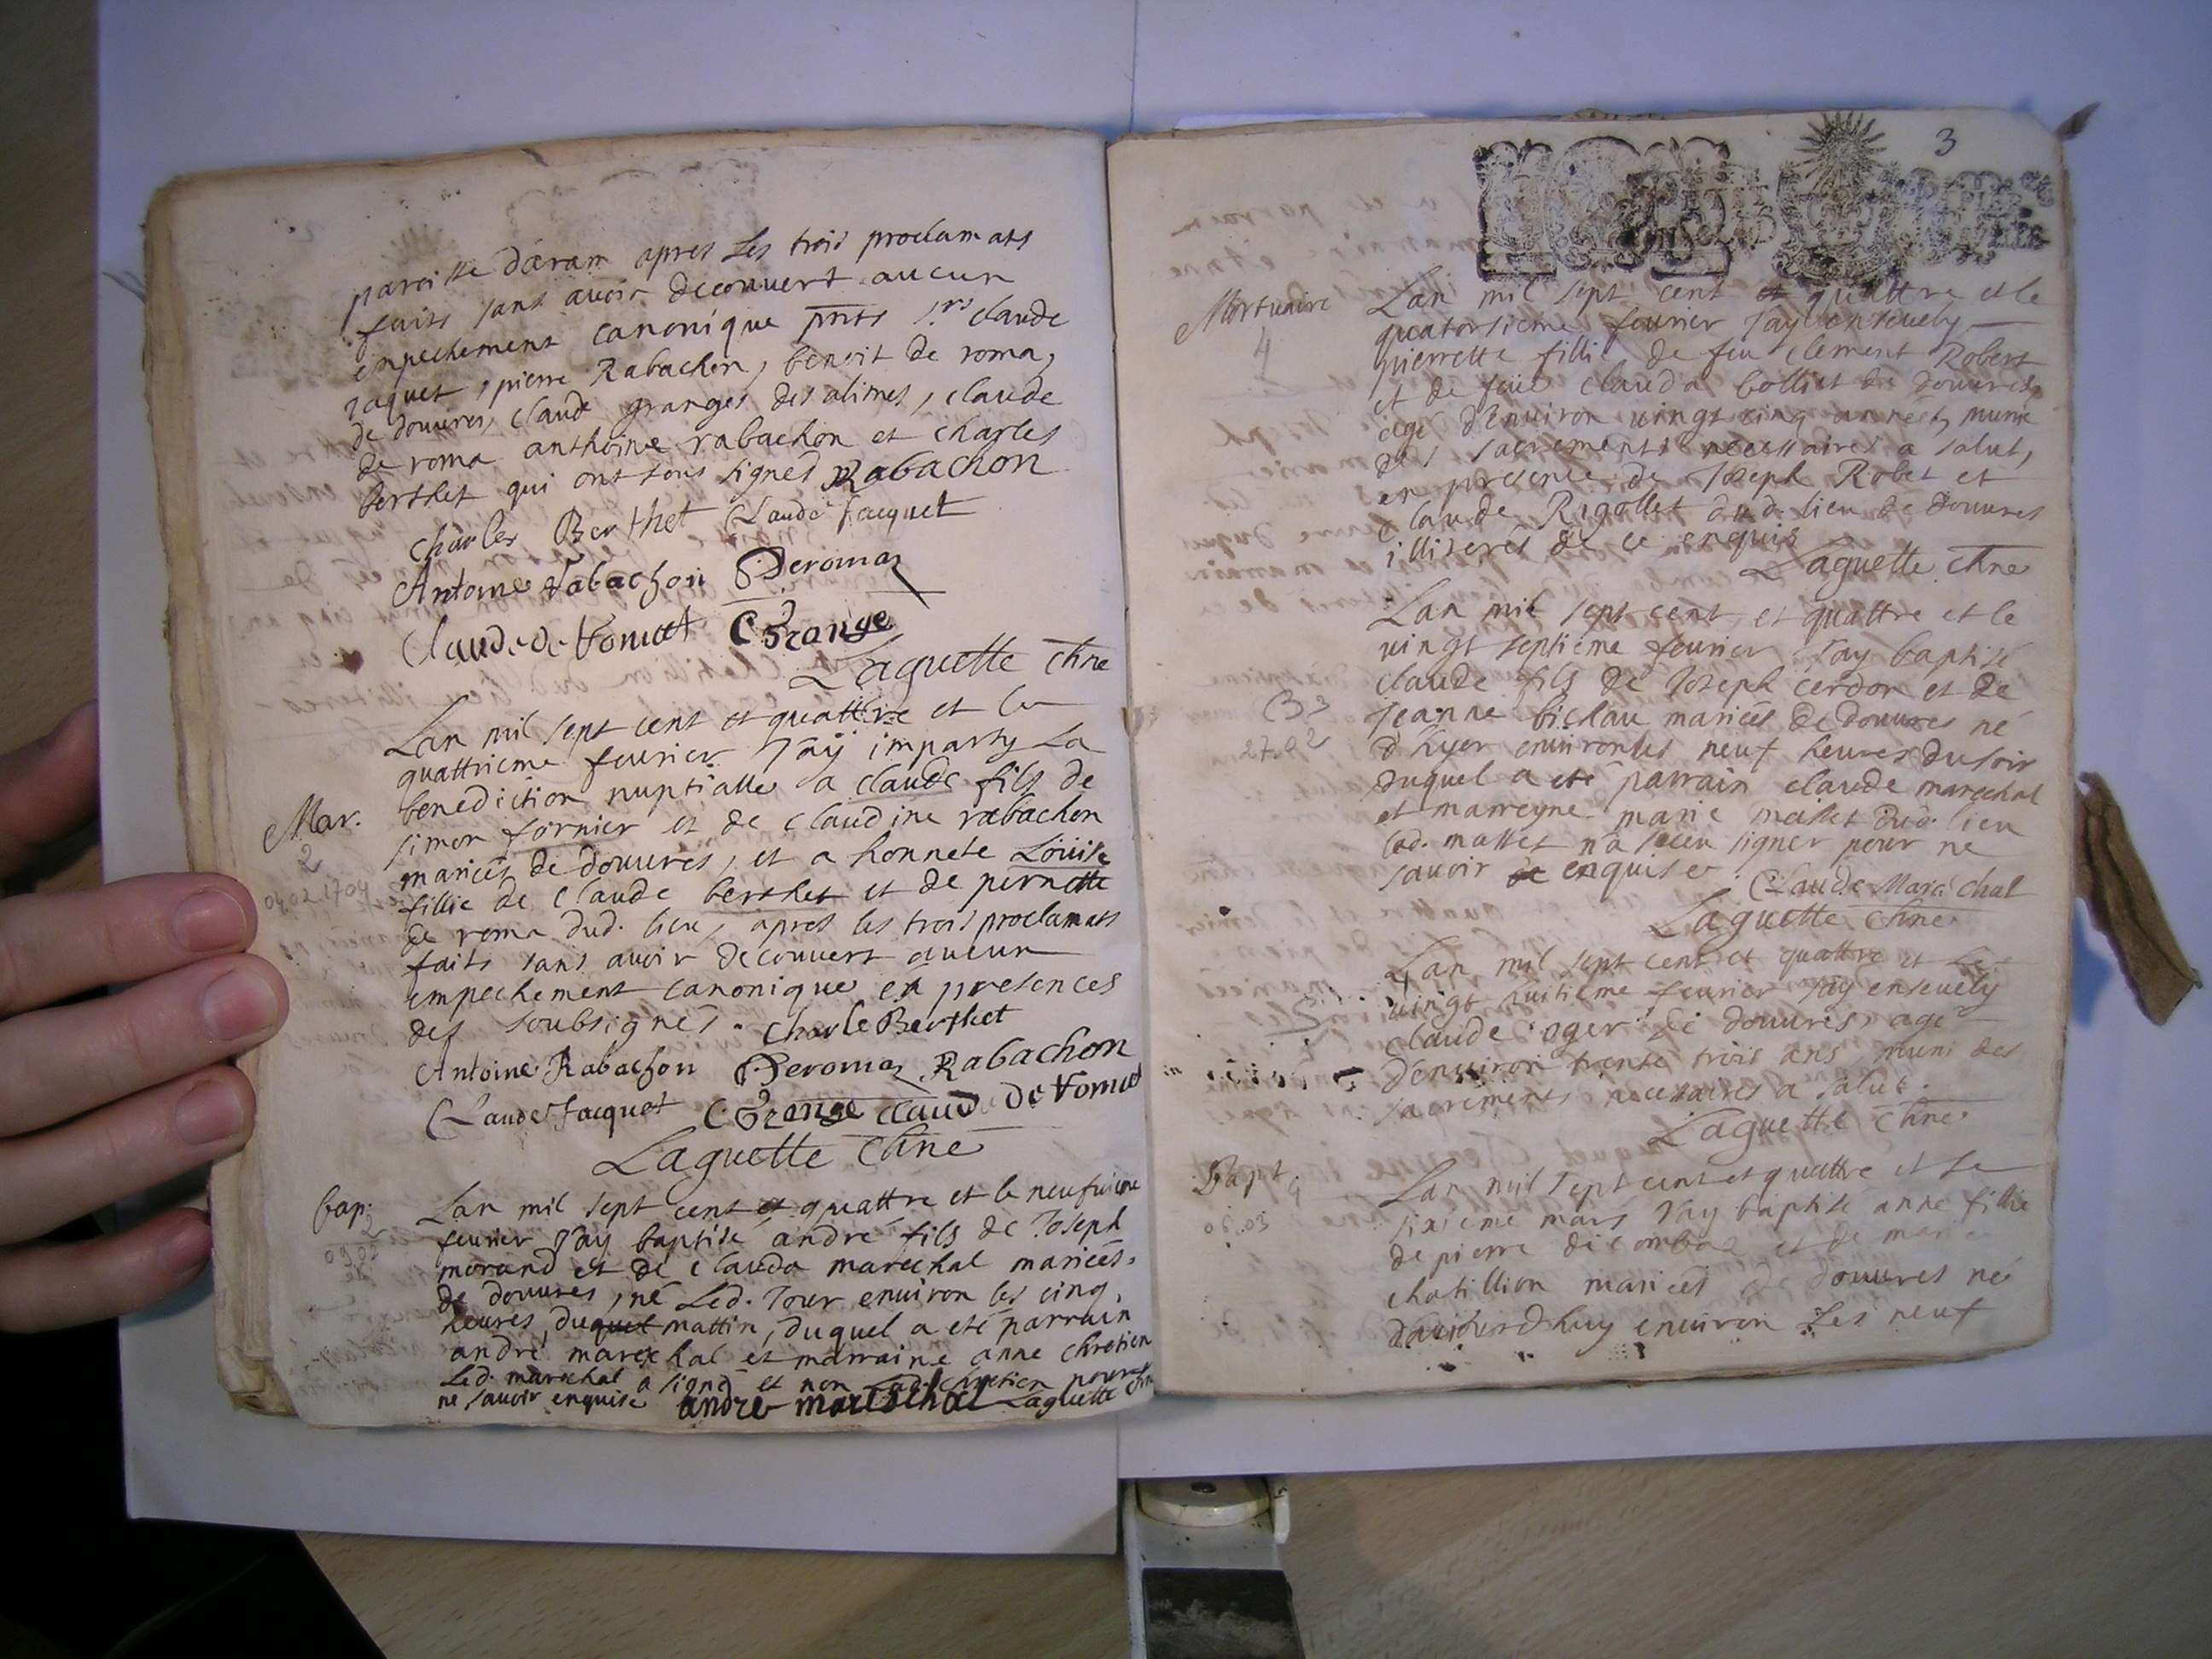 paroisse daran apres les trois proclamats
faits sans avoir decouvert aucun
empechement canonique pnts Srs claude
jaquet, pierre Rabachon, benoit de roma,
de douvres, claude granges des alimes, claude
de roma anthoine rabachon et charles
berthet qui ont tous signes Rabachon
Charles Berthet Claude Jacquet
Antoine Rabachon Deroma
Claude de C Grange
Laguette Chne
Lan mil sept cent et quattre et le
quattrieme feurier Jaÿ imparty La
Mar. benediction nuptialle a claude fils de
2 simon fornier et de claudine rabachon
mariés de douvres, et a honnete Louise
04021704 fillie de claude berthet et de pernette
de roma dud. lieu, apres les trois proclamats
faits sans avoir decouvert aucun
empechement canonique en presences
des soubsignés. Charle Berthet
Antoine Rabachon Deroma Rabachon
Claude Jacquet C Grange claude de
Laguette Chne
bap. Lan mil sept cent et quattre et le neufuieme
2 feurier Jay baptisé andré fils de Joseph
0902 morand et de clauda marechal mariés
de douvres, né Led. Jour environ les cinq
heures, duquel mattin, duquel a eté parrain
andré marechal et marraine anne chretien
Led. marechal a signé et non Lad. chretien pour
ne savoir enquise andre mareschal Laguette Chne
3
Mortuaire Lan mil sept cent et quattre et le
4 quatorsieme feurier Jay ensevely
pierrette fillie de feu clement Robert
et de feue clauda bolliet de douvres,
agé d'environ vingt cinq années, munie
des sacrements necessaires a salut,
en presence de Joseph Robet et
claude Rigollet dud. lieu de douvres
illiteres de ce enquis
Laguette Chne
Lan mil sept cent et quattre et le
vingt septieme feurier Jay baptisé
claude fils de Joseph cerdon et de
B 3 Jeanne mariés de douvres né
27.02 d'hyer environ les neuf heures du soir
duquel a eté parrain claude marechal
et marreyne marie mallet dud. lieu
lad. mallet n'a sceu signer pour ne
savoir de enquise Claude Maréchal
Laguette Chne
Lan mil sept cent et quattre et le
vingt huitieme feurier Jay ensevely
claude oger de douvres, agé
d'environ trente trois ans, muni des
sacrements necessaires a salut.
Laguette Chne
Bapt. 4 Lan mil sept cent et quattre et le
06.03 sixieme mars Jay baptisé anne fillie
de pierre et de marie
chatillion mariés de douvres né
daujourdhuy environ Les neuf